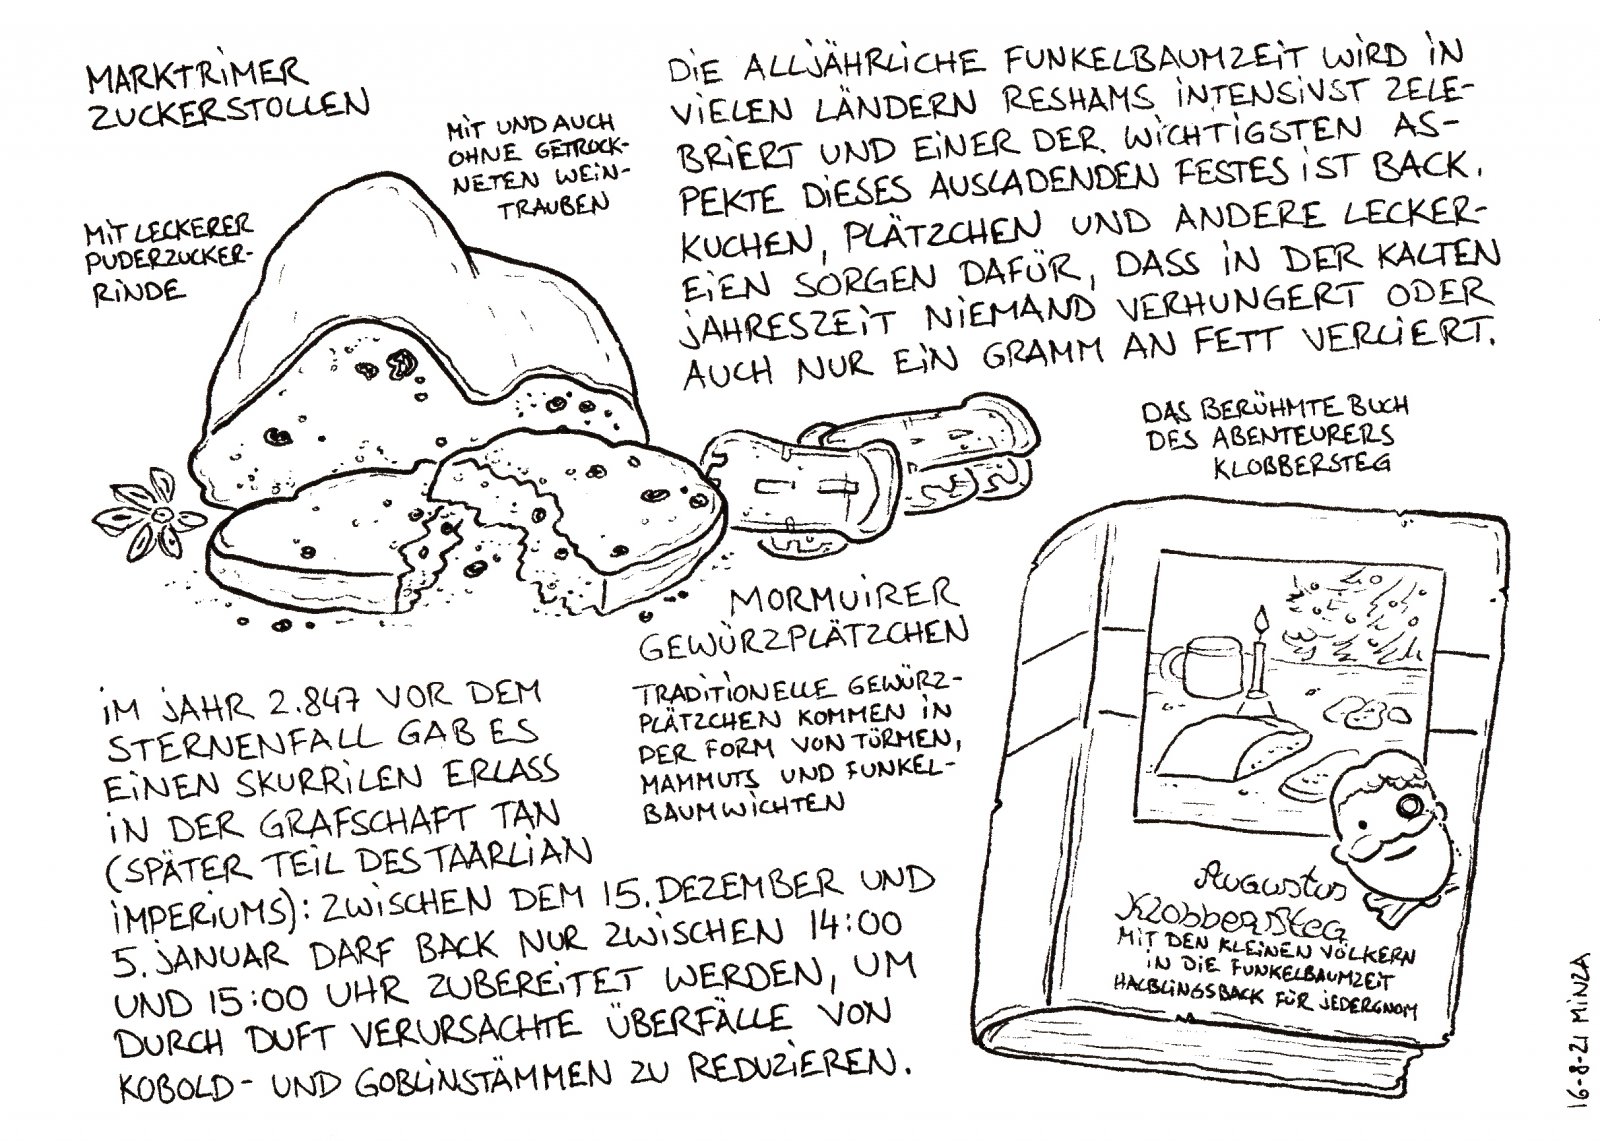 MARKTRIMER
ZUCKERSTOLLEN
MIT UND AUCH
OHNE GETROCK-
NETEN WEIN-
TRAUBEN
MIT LECKERER
PUDERZUCKER-
RINDE
DIE ALLJÄHRLICHE FUNKELBAUMZEIT WIRD IN
VIELEN LÄNDERN RESHAMS INTENSIVST ZELE-
BRIERT UND EINER DER WICHTIGSTEN AS-
PEKTE DIESES AUSLADENDEN FESTES IST BACK.
KUCHEN, PLÄTZCHEN UND ANDERE LECKER-
EIEN SORGEN DAFÜR, DASS IN DER KALTEN
JAHRESZEIT NIEMAND VERHUNGERT ODER
AUCH NUR EIN GRAMM AN FETT VERLIERT.
DAS BERÜHMTE BUCH
DES ABENTEURERS
KLOBBERSTEG
MORMUIRER
GEWÜRZPLÄTZCHEN
TRADITIONELLE GEWÜRZ-
PLÄTZCHEN KOMMEN IN
DER FORM VON TÜRMEN,
MAMMUTS UND FUNKEL-
BAUMWICHTEN
IM JAHR 2.847 VOR DEM
STERNENFALL GAB ES
EINEN SKURRILEN ERLASS
IN DER GRAFSCHAFT TAN
(SPÄTER TEIL DES TAARLIAN
IMPERIUMS): ZWISCHEN DEM 15. DEZEMBER UND
5. JANUAR DARF BACK NUR ZWISCHEN 14:00
UND 15:00 UHR ZUBEREITET WERDEN, UM
DURCH DUFT VERURSACHTE ÜBERFÄLLE VON
KOBOLD- UND GOBLINSTÄMMEN ZU REDUZIEREN.
Augustus
Klobbersteg
MIT DEN KLEINEN VÖLKERN
IN DIE FUNKELBAUMZEIT
HALBLINGSBACK FÜR JEDERGNOM
16-8-21 MINZA